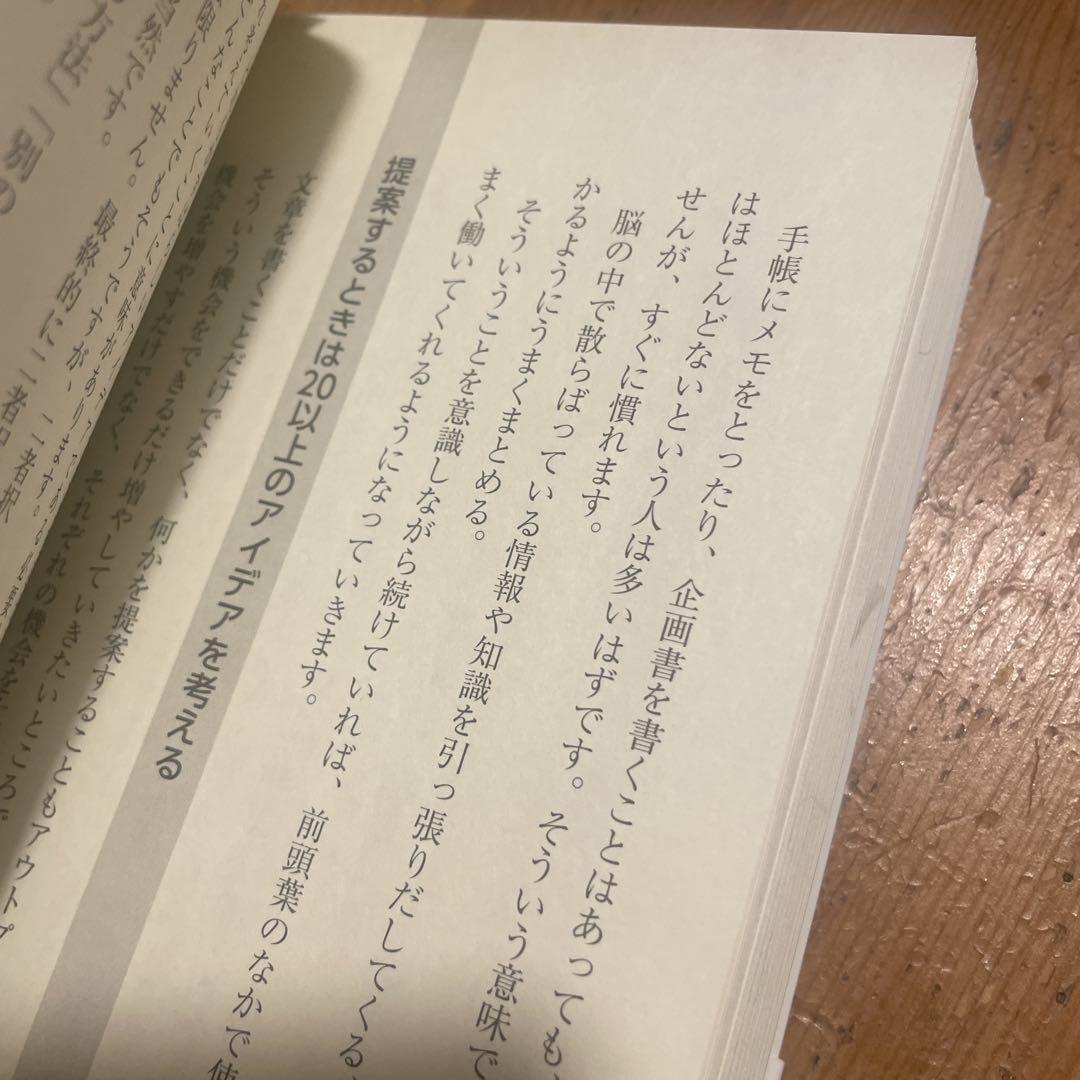 手帳にメモをとったり、企画書を書くことはあっても、
はほとんどないという人は多いはずです。そういう意味で
せんが、すぐに慣れます。
脳の中で散らばっている情報や知識を引っ張りだしてくる
かるようにうまくまとめる。
そういうことを意識しながら続けていれば、前頭葉のなかで使
まく働いてくれるようになっていきます。
提案するときは20以上のアイデアを考える
文章を書くことだけでなく、何かを提案することもアウトプ
そういう機会をできるだけ増やしていきたいところで
機会を増やすだけでなく、それぞれの機会を
限りません。
当然です。最終的に二者択
方法」「別の